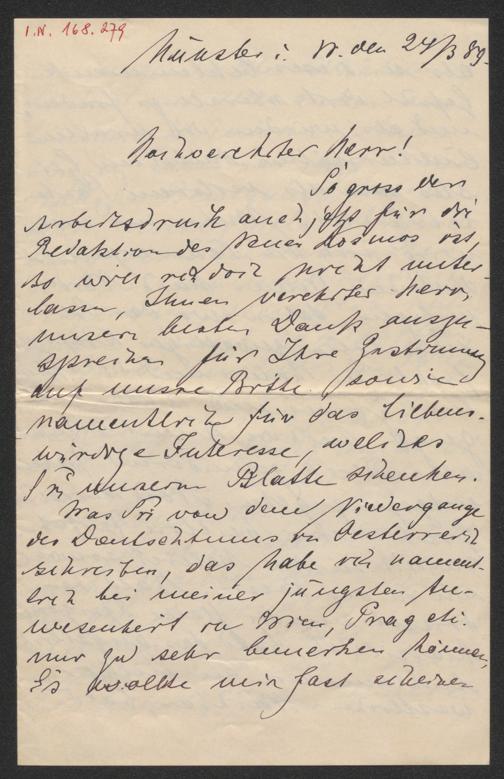 I.N. 168.279
Münster i. W. den 24/3 89.
Hochverehrter Herr!
So gross der
Arbeitsdruck auch jetzt für die
Redaktion des Kosmos ist,
so will ich doch nicht unter-
lassen, Ihnen verehrter Herr,
unsern besten Dank auszu-
sprechen für Ihre Zustimmung
auf unsre Bitte sowie
namentlich für das liebens-
würdige Interesse, welches
Sie unserm Blatte schenken.
Was Sie von dem Niedergange
des Deutschtums in Oesterreich
schreiben, das habe ich nament-
lich bei meiner jüngsten An-
wesenheit in Wien, Prag etc.
nur zu sehr bemerken können,
Es wollte mir fast scheinen